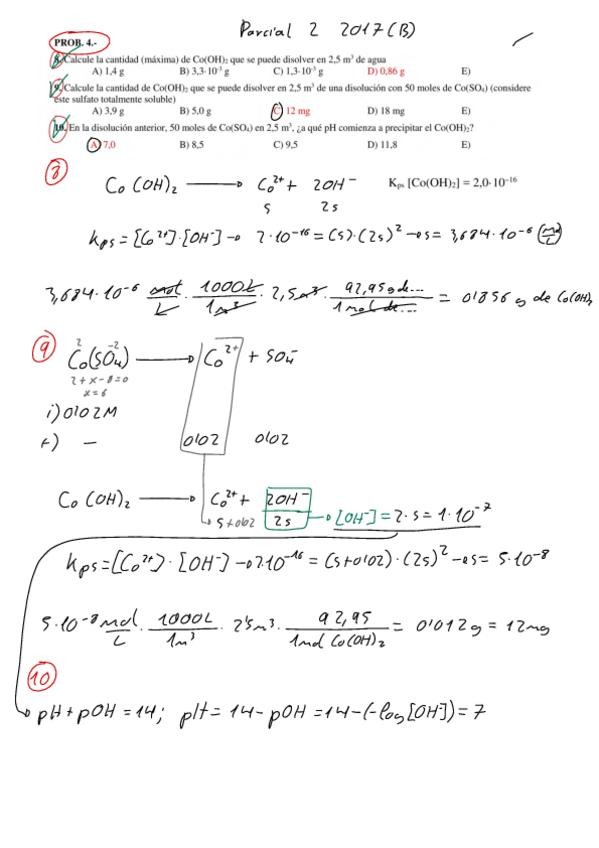 Parcial 2 2017(B)
PROB. 4.-
8. Calcule la cantidad (máxima) de Co(OH)₂ que se puede disolver en 2,5 m³ de agua
A) 1,4 g B) 3,3·10⁻³ g C) 1,3·10⁻³ g D) 0,86 g E)
9. Calcule la cantidad de Co(OH)₂ que se puede disolver en 2,5 m³ de una disolución con 50 moles de Co(SO₄) (considere
éste sulfato totalmente soluble)
A) 3,9 g B) 5,0 g C) 12 mg D) 18 mg E)
10. En la disolución anterior, 50 moles de Co(SO₄) en 2,5 m³, ¿a qué pH comienza a precipitar el Co(OH)₂?
A) 7,0 B) 8,5 C) 9,5 D) 11,8 E)
8
Co(OH)₂ → Co²⁺ + 2OH⁻ Kps [Co(OH)₂] = 2,0·10⁻¹⁶
s 2s
Kps = [Co²⁺]·[OH⁻] → 2·10⁻¹⁶ = (s)·(2s)² → s = 3,684·10⁻⁶ (mol/L)
3,684·10⁻⁶ mol/L · 1000L/1m³ · 2,5m³ · 92,95g de.../1mol de... = 0'856 g de Co(OH)₂
9
2 -2
Co(SO₄) → Co²⁺ + SO₄⁼
2+x-8=0
x=6
i) 0'02M
f) - 0'02 0'02
Co(OH)₂ → Co²⁺ + 2OH⁻
s+0'02 2s → [OH⁻] = 2·s = 1·10⁻⁷
Kps = [Co²⁺]·[OH⁻] → 2·10⁻¹⁶ = (s+0'02)·(2s)² → s = 5·10⁻⁸
5·10⁻⁸ mol/L · 1000L/1m³ · 2'5m³ · 92,95/1mol Co(OH)₂ = 0'012g = 12mg
10
pH + pOH = 14; pH = 14 - pOH = 14 - (-log[OH⁻]) = 7